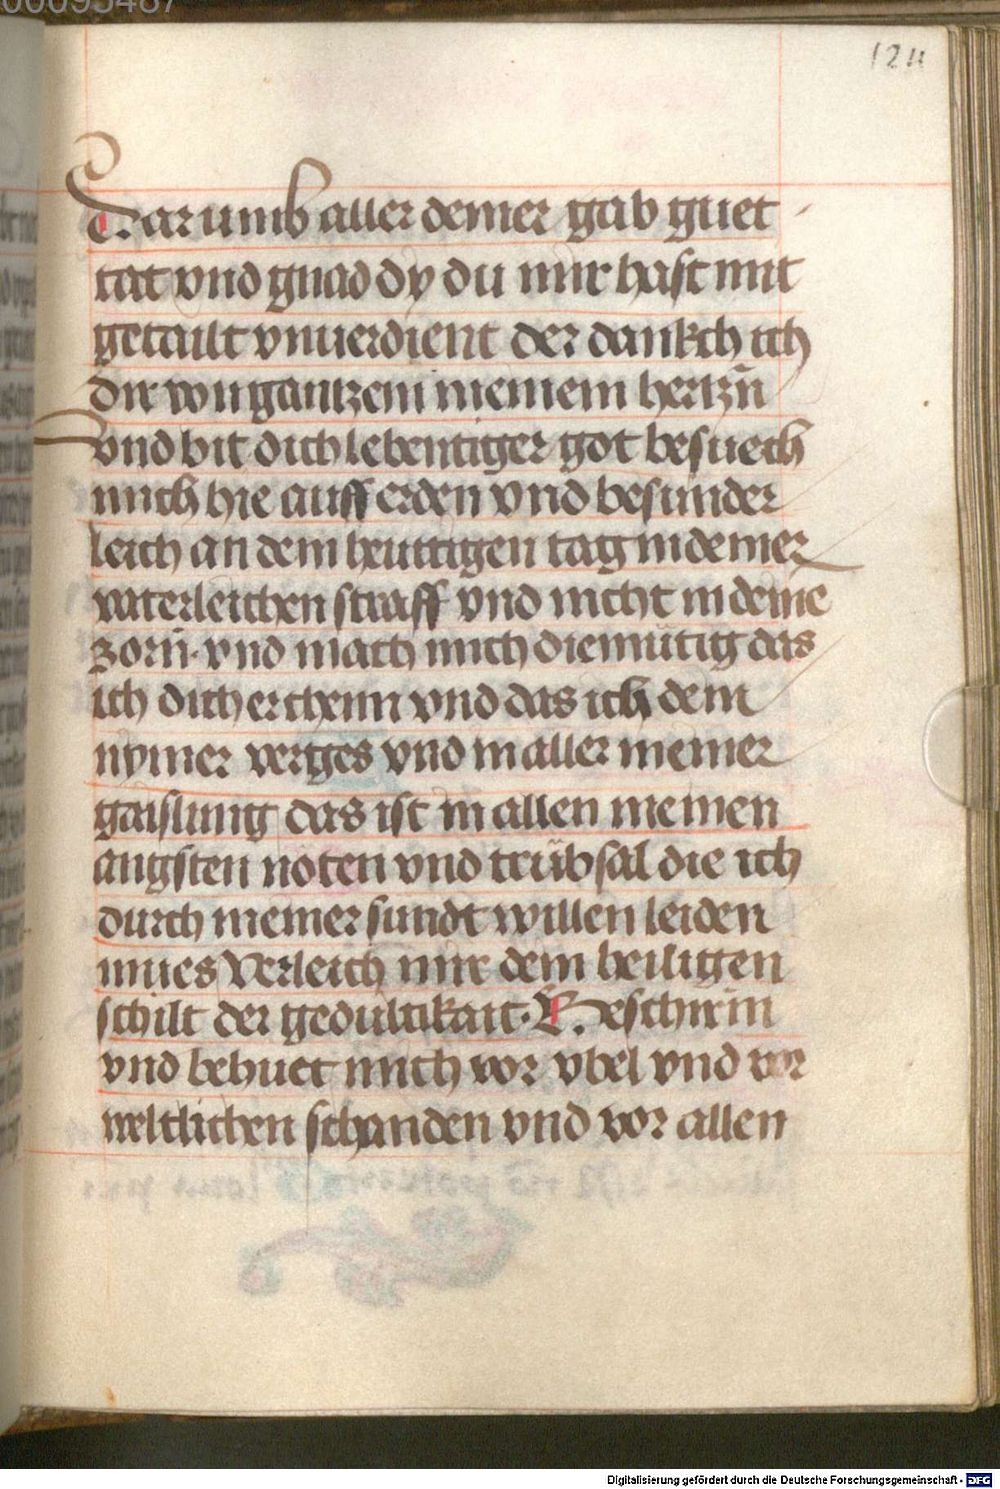 124
Darumb aller deiner gab guet
tat vnd gnad dy du mir hast mit
getailt vnuerdient der dankch ich
dir von gantzem meinem hertzn̄
vnd bit dich lebentiger got besuech
mich hie auff erden vnd besunder
leich an dem heuttigen tag in deiner
vaterleichen straff vnd nicht in deinē
zorn̄. vnd mach mich diemütig das
ich dich erchenn vnd das ich dein
nymer verges vnd in aller meiner
gaislung das ist in allen meinen
angsten nöten vnd trübsal die ich
durch meiner sundt willen leiden
mues Verleich mir dein heiligen
schilt der gedultikait. Beschirm
vnd behuet mich vor vbel vnd vor
weltlichen schanden vnd vor allen
Digitalisierung gefördert durch die Deutsche Forschungsgemeinschaft - DFG